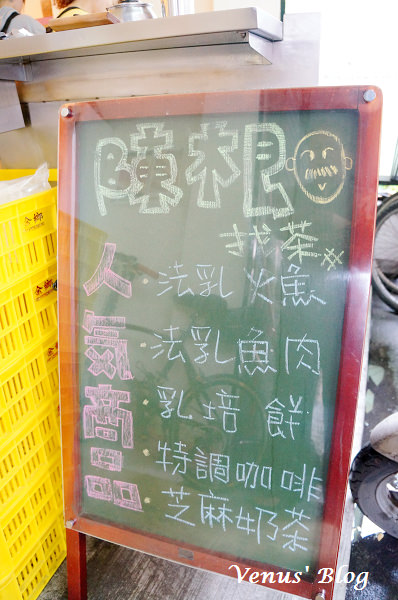 陳根
找茶
人氣商品
法乳火魚
法乳魚肉
乳培餅
特調咖啡
芝麻奶茶
Venus' Blog